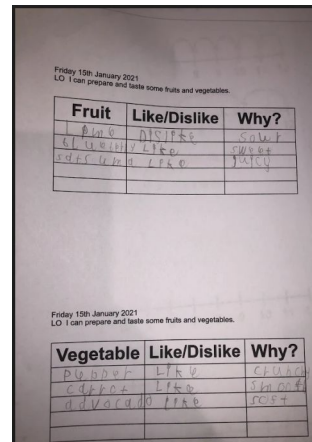 Friday 15th January 2021
LO I can prepare and taste some fruits and vegetables.
Fruit Like/Dislike Why?
lime Dislike sour
blueirry Like sweet
satsuma Like juicy
Friday 15th January 2021
LO I can prepare and taste some fruits and vegetables.
Vegetable Like/Dislike Why?
pepper Like crunchy
carrot Like smooth
advocado like soft